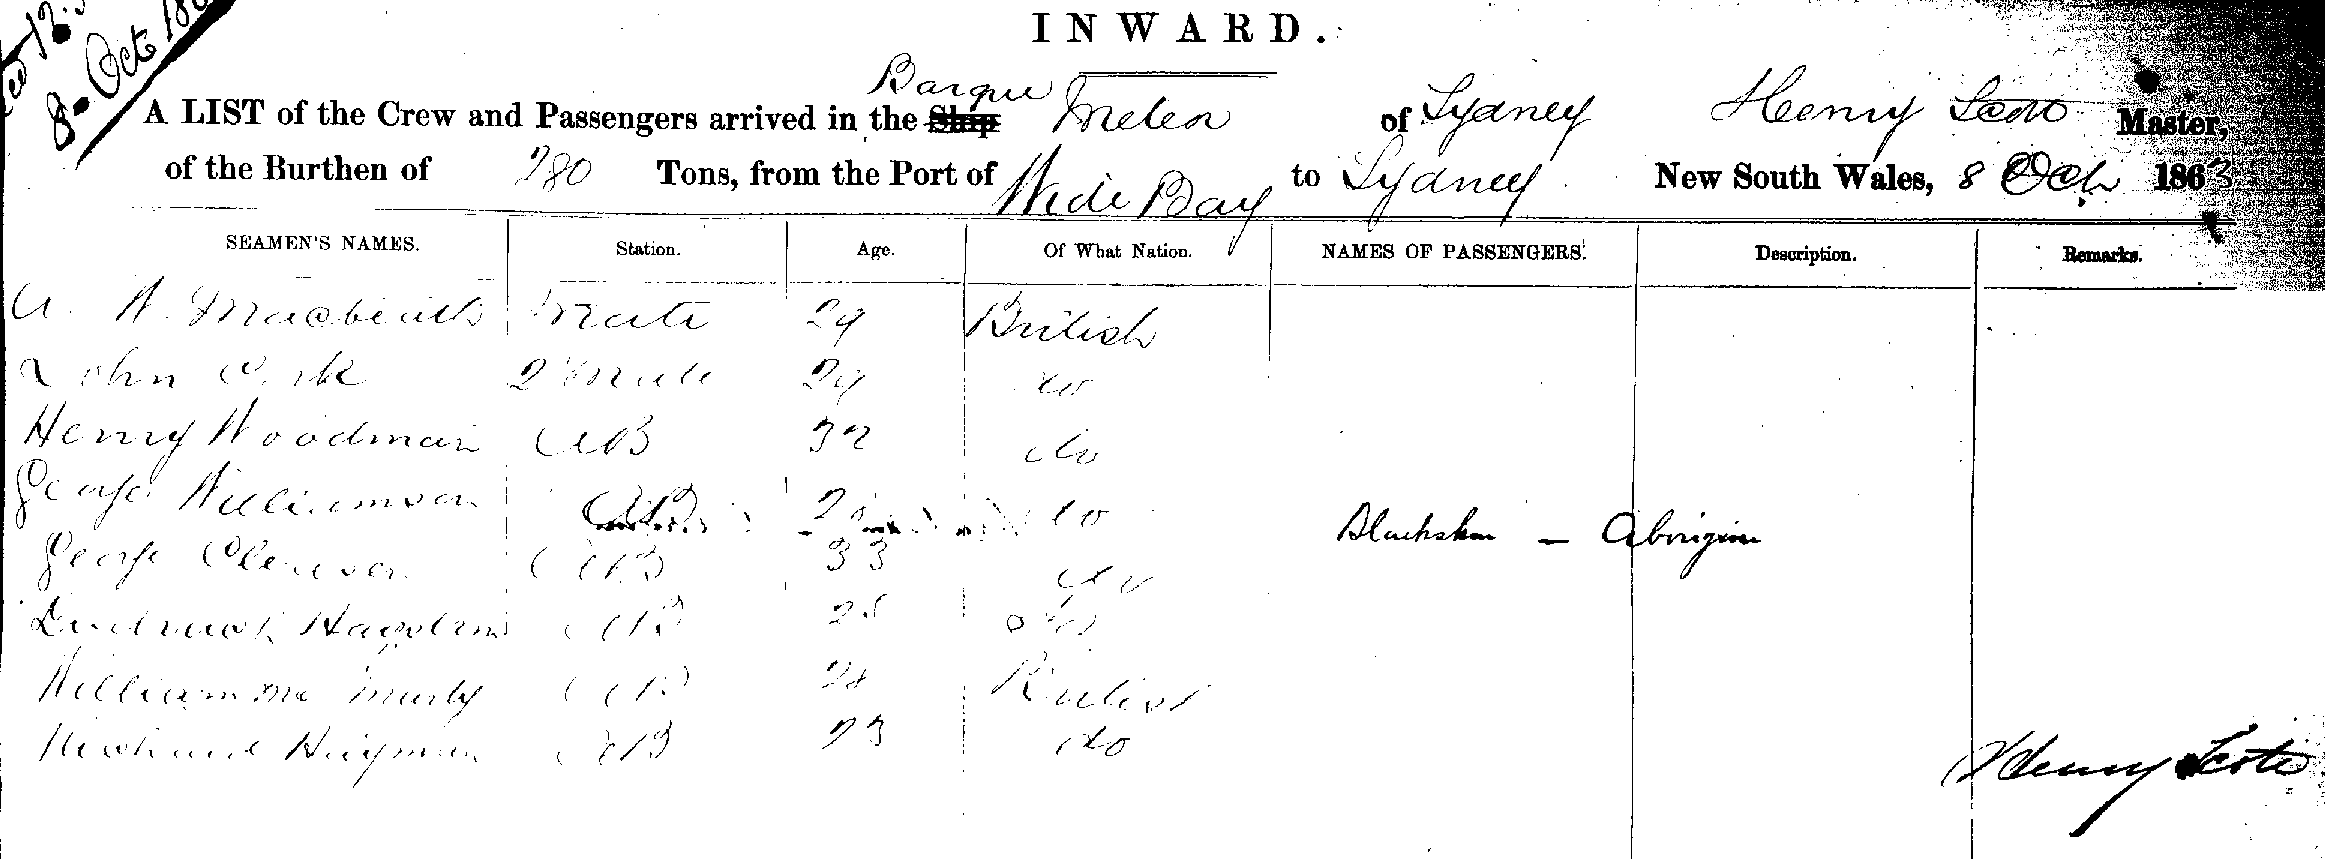 8 Oct 186
INWARD.
Barque
A LIST of the Crew and Passengers arrived in the Ship Meteor of Sydney Henry Scott Master,
of the Burthen of 280 Tons, from the Port of Wide Bay to Sydney New South Wales, 8 Oct 1863
SEAMEN'S NAMES. Station. Age. Of What Nation. NAMES OF PASSENGERS. Description. Remarks.
A. N. Macbeath Mate 29 British
John Cork 2 Mate 29 do
Henry Woodman AB 32 do
George Williamson AB do
Blackskin — Aborigine
George AB 33 do
AB
William Mc AB 28 British
AB 23 do
Henry Scott